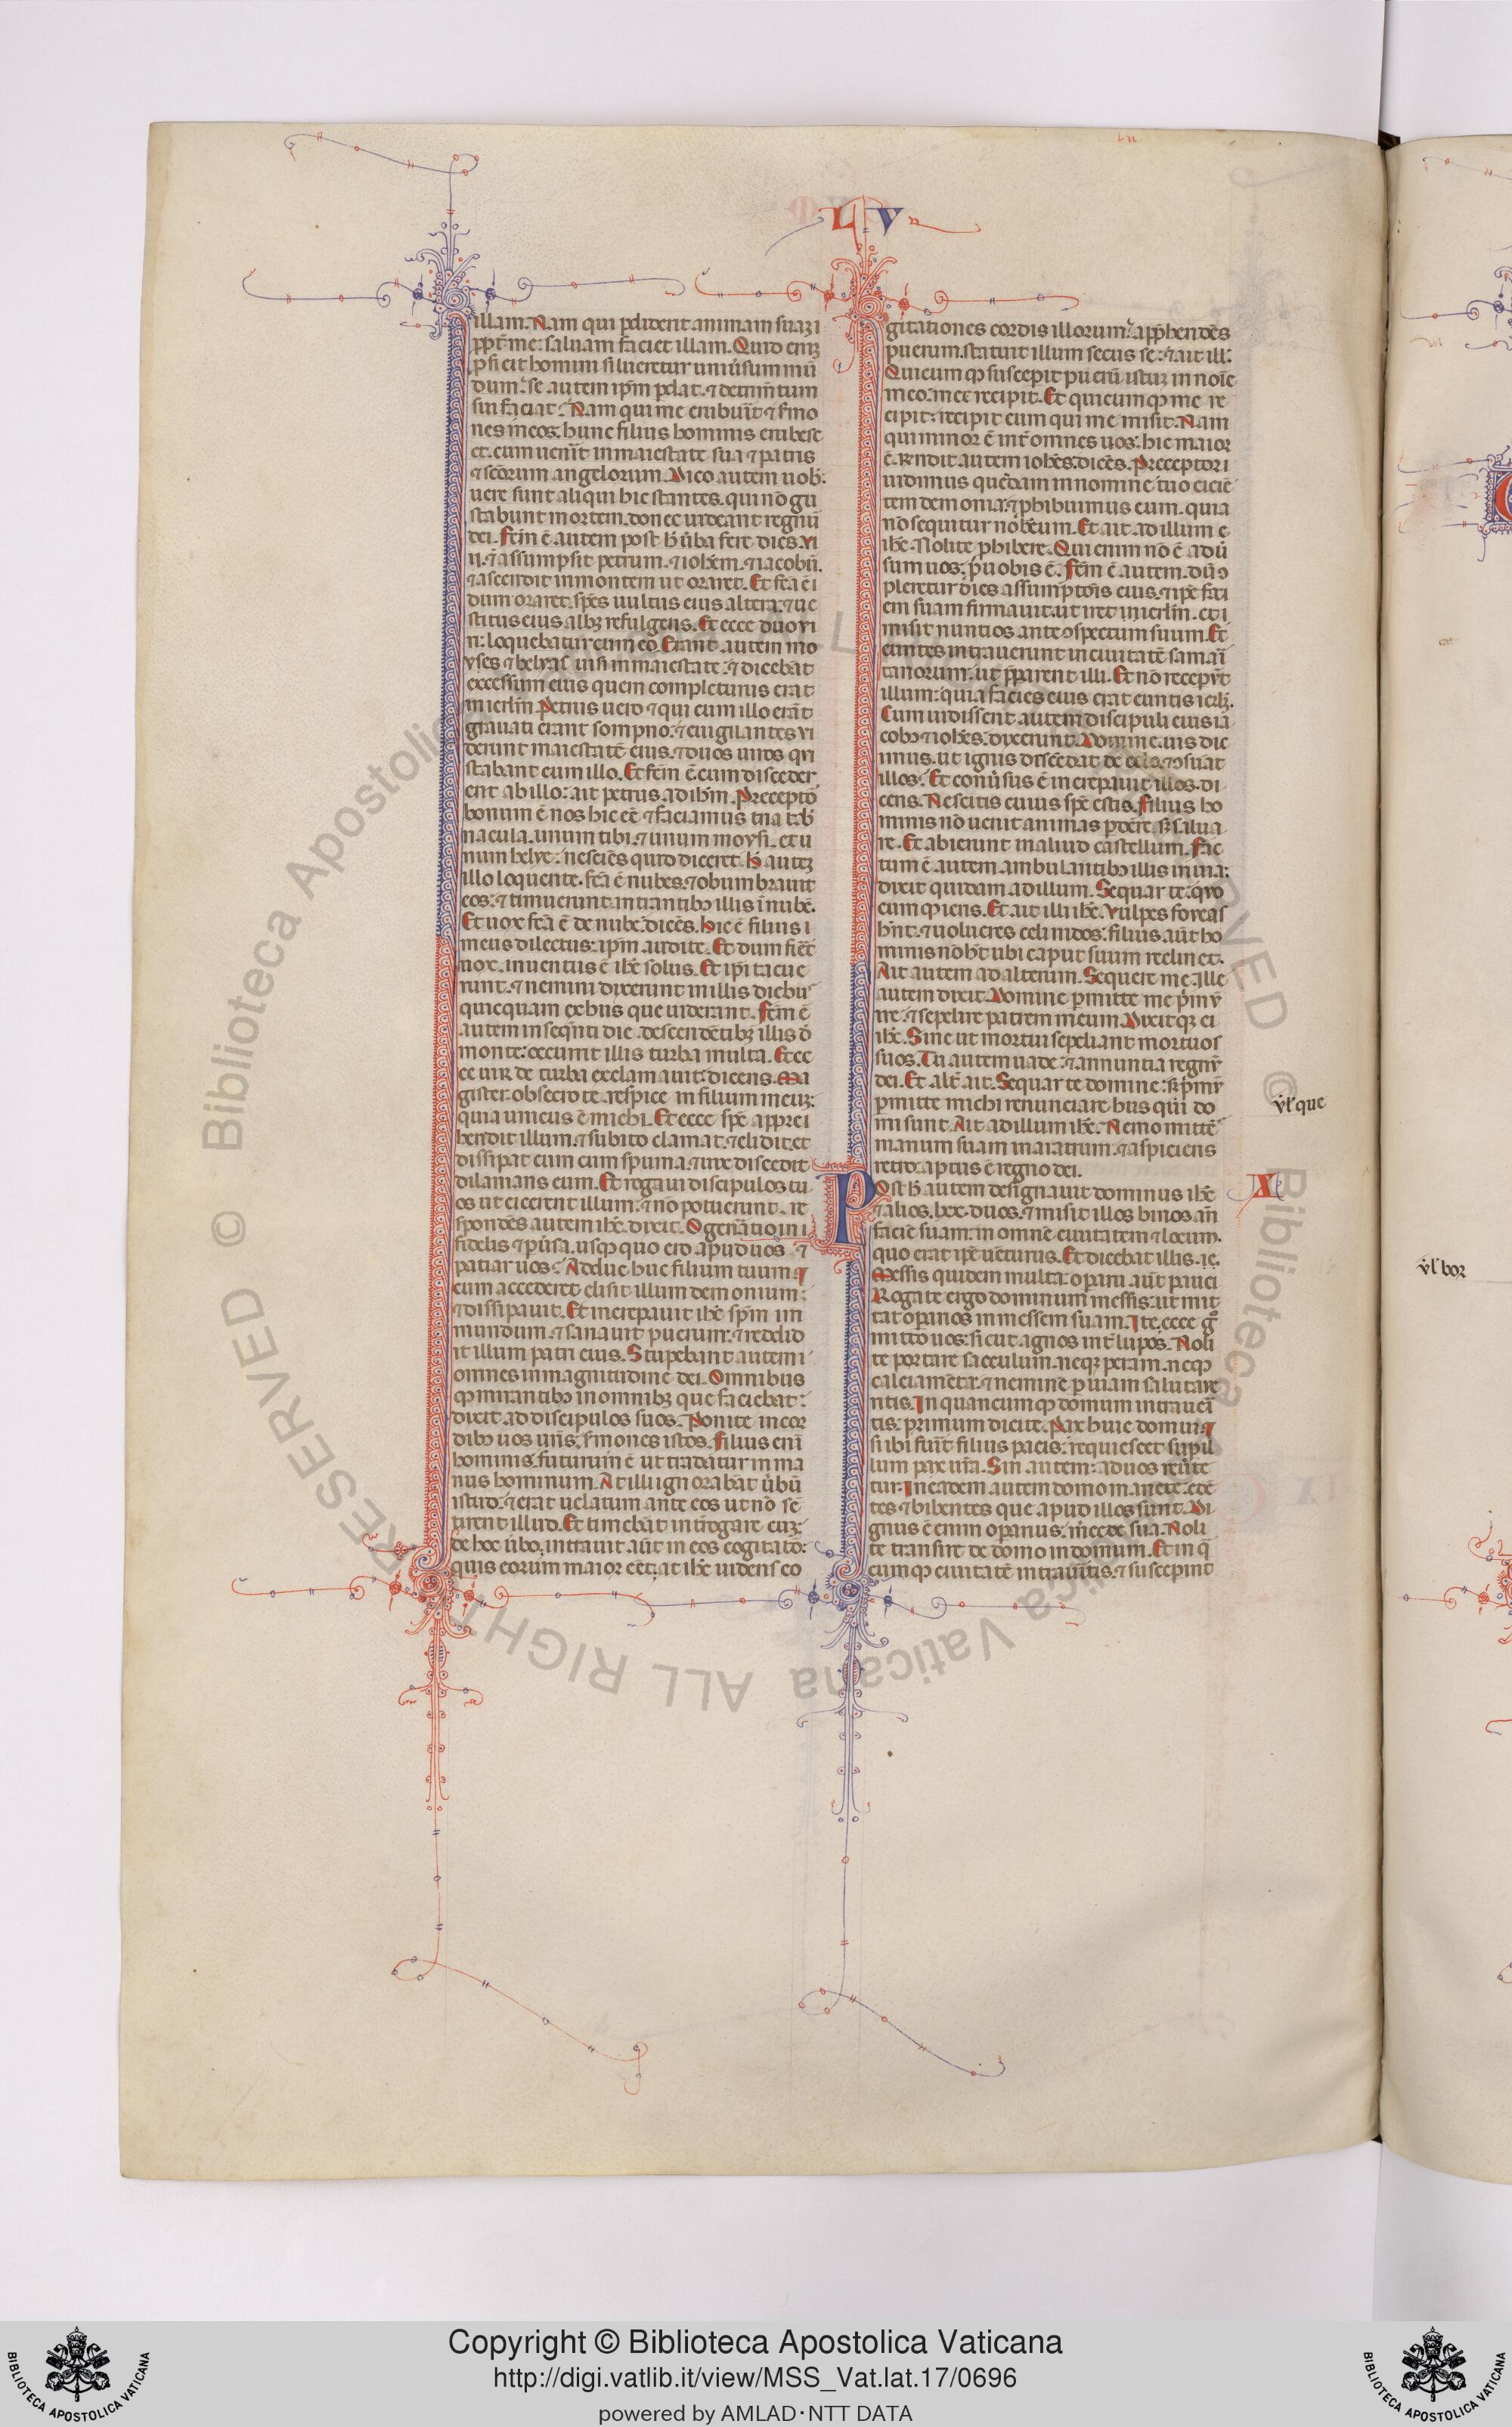 L V
illam. Nam qui p̱diderit animam suaȝ i
ꝓpt̄ me: saluam faciet illam. Quid eniȝ
ꝓficit homini si lucretur uniũsum mũ
dum: se autem ip̄m p̱dat. ⁊ detrim̄tum
sui faciat? Nam qui me erubuĩt ⁊ s̃mo
nes meos: hunc filius hominis erubesc
et. cum uen̄it in maiestate sua ⁊ patris
⁊ sc̄orum angelorum. Dico autem uob̄:
uere sunt aliqui hic stantes. qui nō gu
stabunt mortem. donec uideant regnũ
dei. Fc̄m ē autem post h̄ ũba fere dies. vi
ii. ⁊ assumpsit petrum. ⁊ ioh̄em. ⁊ iacobũ.
⁊ ascendit in montem ut oraret. Et fc̄a ē i
dum oraret. sp̄es uultus eius altera: ⁊ ue
stitus eius albꝫ refulgens. Et ecce duo vi
ri: loquebatur cum eo. Erant autem mo
yses ⁊ helyas uisi in maiestate: ⁊ dicebāt
excessum eius quem completurus erat
in ierl̄m. Petrus uero ⁊ qui cum illo erāt
grauati erant sompno: ⁊ euigilantes vi
derunt maiestatē eius. ⁊ duos uiros qui
stabant cum illo. Et fc̄m ē cum disceder
ent ab illo: ait petrus ad ih̄m. Precepto
bonum ē nos hic eē ⁊ faciamus tria tab̄
nacula. unum tibi. ⁊ unum moysi. et u
num helye: nesciēs quid diceret. h̄ auteȝ
illo loquente. fc̄a ē nubes. ⁊ obumbrauit
eos: ⁊ timuerunt intrantibꝰ illis ī nubē.
Et uox fc̄a ē de nube: dicēs. Hic ē filius i
meus dilectus: ip̄m audite. Et dum fieēt
uox. inuentus ē ih̄c solus. Et ip̄i tacue
runt. ⁊ nemini dixerunt in illis diebus
quicquam ex hiis que uiderant. Fc̄m ē
autem in seq̄nti die. descendētibꝫ illis d̄
monte: occurrit illis turba multa. Et ec
ce uir de turba exclamauit: dicens. Ma
gister obsecro te. respice in filium meuȝ:
quia unicus ē michi. Et ecce sp̄c appreı
hendit illum. ⁊ subito clamat. ⁊ elidit. et
dissipat eum cum spuma. ⁊ uix discedit
dilanians eum. Et rogaui discipulos tu
os ut eicerent illum: ⁊ nō potuerunt. re
spondēs autem ih̄c. dixit. O gen̄atio in i
fidelis ⁊ ꝑũsa. usqꝫ quo ero apud uos ⁊
patiar uos? Adduc huc filium tuum ¶
cum accederet elisit illum demonium:
⁊ dissipauit. Et increpauit ih̄c sp̄m im
mundum. ⁊ sanauit puerum: ⁊ reddid
it illum patri eius. Stupebant autem i
omnes in magnitudine dei. Omnibus
qꝫ mirantibꝰ in omnibꝫ que faciebat:
dixit ad discipulos suos. Ponite in cor
dibꝰ uos ur̄is. s̃mones istos. Filius eni
hominis. futurum ē ut tradatur in ma
nus hominum. At illi ignorabāt ũbũ
istud: ⁊ erat uelatum ante eos ut nō sē
tirent illud. Et timebāt int̄rogare euȝ:
de hoc ũbo. intrauit aūt in eos cogitatō:
quis eorum maior eēt. at ih̄c uidens co
gitationes cordis illorum: app̄hendēs
puerum. statuit illum secus se: ⁊ ait ill̄:
Quicumqꝫ susceperit puerũ istuȝ in noīe
meo: me recipit. Et quicumqꝫ me re
cipit: recipit eum qui me misit. Nam
qui minor ē int̄ omnes uos: hic maior
ē. Rn̄dit autem ioh̄es: dicēs. Preceptor i
uidimus quēdam in nomine tuo eiciē
tem demonia: ⁊ ꝓhibuimus eum. quia
nō sequitur nob̄cum. Et ait ad illum e
ih̄c. Nolite ꝓhibere. Qui enim nō ē adũ
sum uos: p̄ uobis ē. Fc̄m ē autem. dũ ꝯ
pleretur dies assumptōis eius. ⁊ ip̄e faci
em suam firmauit. ut iret in ierl̄m. et i
misit nuntios ante ꝯspectum suum. Et
euntes intrauerunt in ciuitatē samaī
tanorum: ut p̄parent illi. Et nō recep̄ūt
illum: quia facies eius erat euntis ierl̄ȝ.
Cum uidissent autem discipuli eius ia
cobꝰ ⁊ ioh̄es: dixerunt. Domine. uis dic
imus. ut ignis descēdat de celo. ⁊ ꝯsūat
illos? Et conũsus ē increpauit illos. di
cens. Nescitis cuius sp̄c estis. Filius ho
minis nō uenit animas ꝑdere. s̄ salua
re. Et abierunt in aliud castellum. Fac
tum ē autem. ambulantibꝰ illis in uia:
dixit quidam ad illum. Sequar te: qͦ
cumqꝫ ieris. Et ait illi ih̄c. Vulpes foueas
hn̄t. ⁊ uolucres celi nidos: filius aūt ho
minis nō h̄t ubi caput suum reclinet.
Ait autem ad alterum. Sequere me. Ille
autem dixit. Domine ꝑmitte me p̄mũ
ire. ⁊ sepelire patrem meum. Dixitqꝫ ei
ih̄c. Sine ut mortui sepeliant mortuos
suos. Tu autem uade: ⁊ annuntia regnũ
dei. Et alt̄ ait. Sequar te domine: s̄ p̄mũ
ꝑmitte michi renunciare hiis qui do
mi sunt. Ait ad illum ih̄c. Nemo mittē
manum suam in aratrum. ⁊ aspiciens
retro: aptus ē regno dei.
Post h̄ autem designauit dominus ih̄c
⁊ alios. lxx. duos. ⁊ misit illos binos an̄
faciē suam: in omnē ciuitatem ⁊ locum.
quo erat ip̄e uēturus. Et dicebat illis. ie.
Messis quidem multa: operarii aūt pauci
Rogate ergo dominum messis: ut mit
tat operarios in messem suam. Ite. ecce gͦ
mitto uos: sicut agnos int̄ lupos. Noli
te portare sacculum. neqꝫ peram. neqꝫ
calciamēta. ⁊ neminē ꝑ uiam salutare
ritis. In quancumqꝫ domum intraueri
tis. primum dicite. Pax huic domui ¶
si ibi fũit filius pacis: requiescet sup̱ il
lum pax ur̄a. Sin autem: ad uos reũte
tur. In eadem autem domo manete. edē
tes ⁊ bibentes que apud illos sunt. Di
gnus ē enim operarius: m̃cede sua. Noli
te transire de domo in domum. Et in q̄
cumqꝫ ciuitatē intrauĩtis. ⁊ susceperint
X
vl̄ que
vl̄ bor
© Biblioteca Apostolica Vaticana ALL RIGHT RESERVED
Copyright © Biblioteca Apostolica Vaticana
http://digi.vatlib.it/view/MSS_Vat.lat.17/0696
powered by AMLAD·NTT DATA
BIBLIOTECA APOSTOLICA VATICANA
BIBLIOTECA APOSTOLICA VATICANA